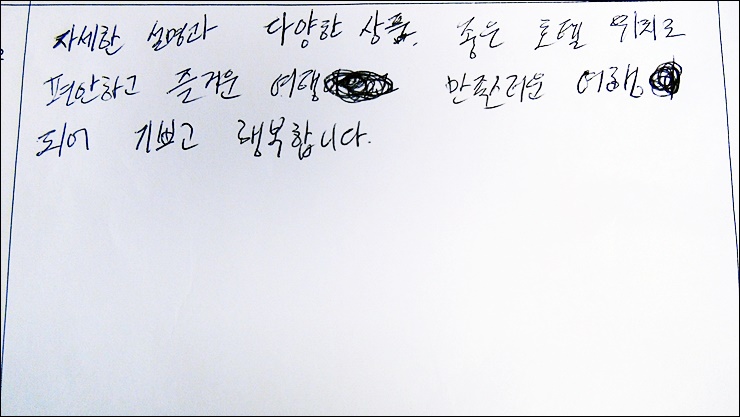 자세한 설명과 다양한 상품. 좋은 호텔 위치로
편안하고 즐거운 여행 만족스러운 여행
되어 기쁘고 행복합니다.